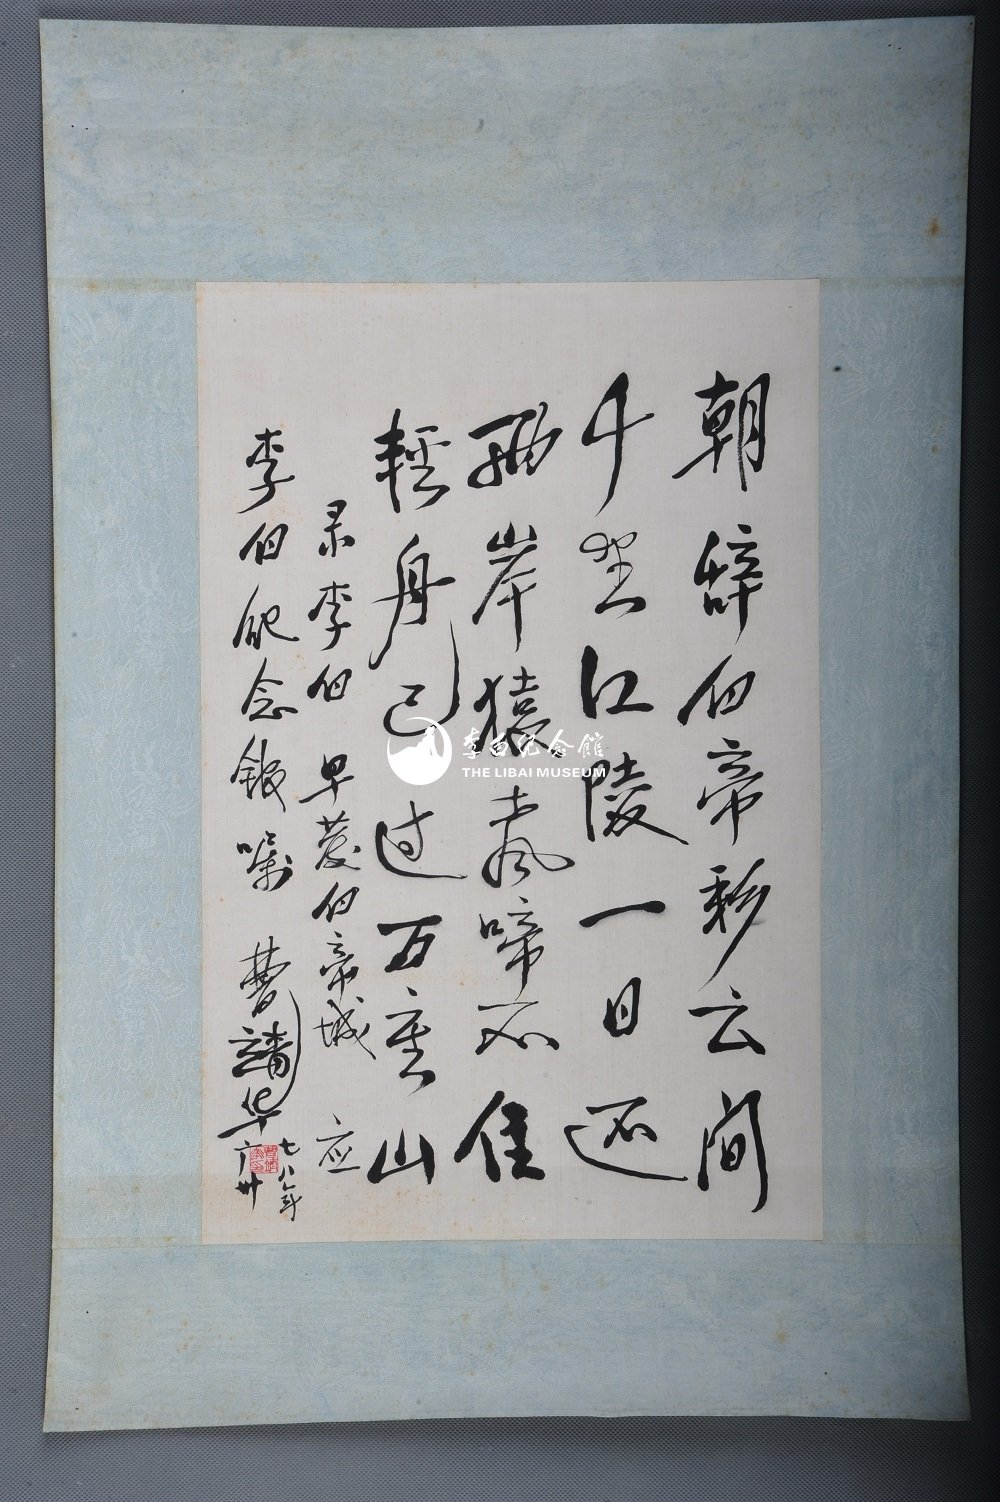 朝辞白帝彩云间
千里江陵一日还
两岸猿声啼不住
輕舟已过万重山
录李白 早發白帝城 应
李白纪念馆嘱 曹靖华
七八年
广州
李白纪念馆
THE LIBAI MUSEUM